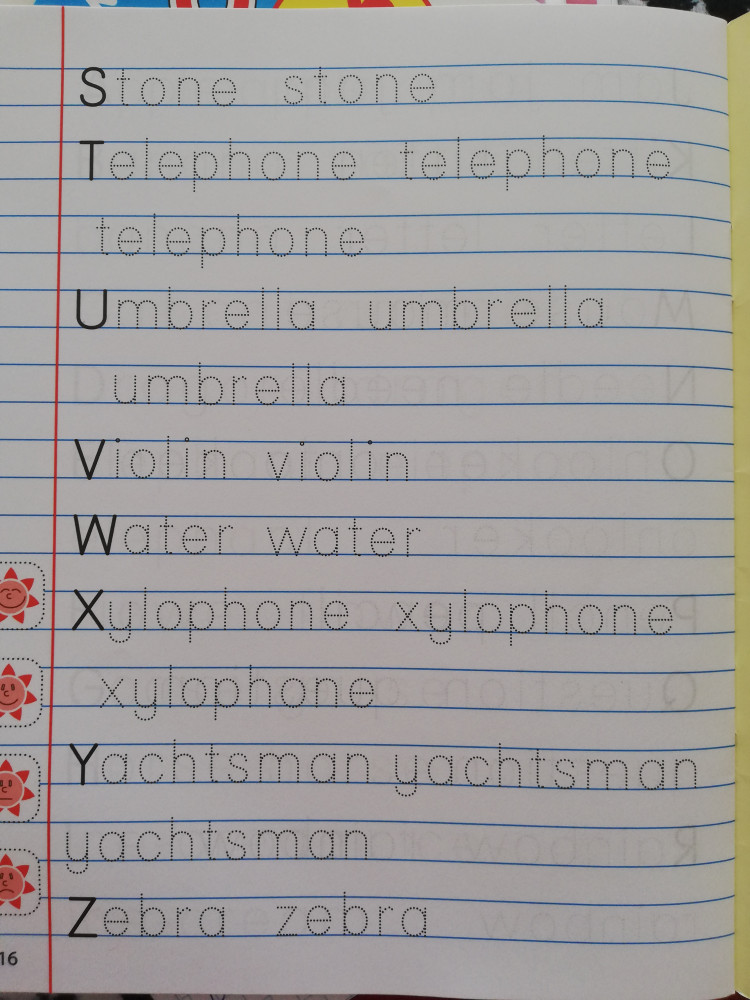 Stone stone
Telephone telephone
telephone
Umbrella umbrella
umbrella
Violin violin
Water water
Xylophone xylophone
xylophone
Yachtsman yachtsman
yachtsman
Zebra zebra
16